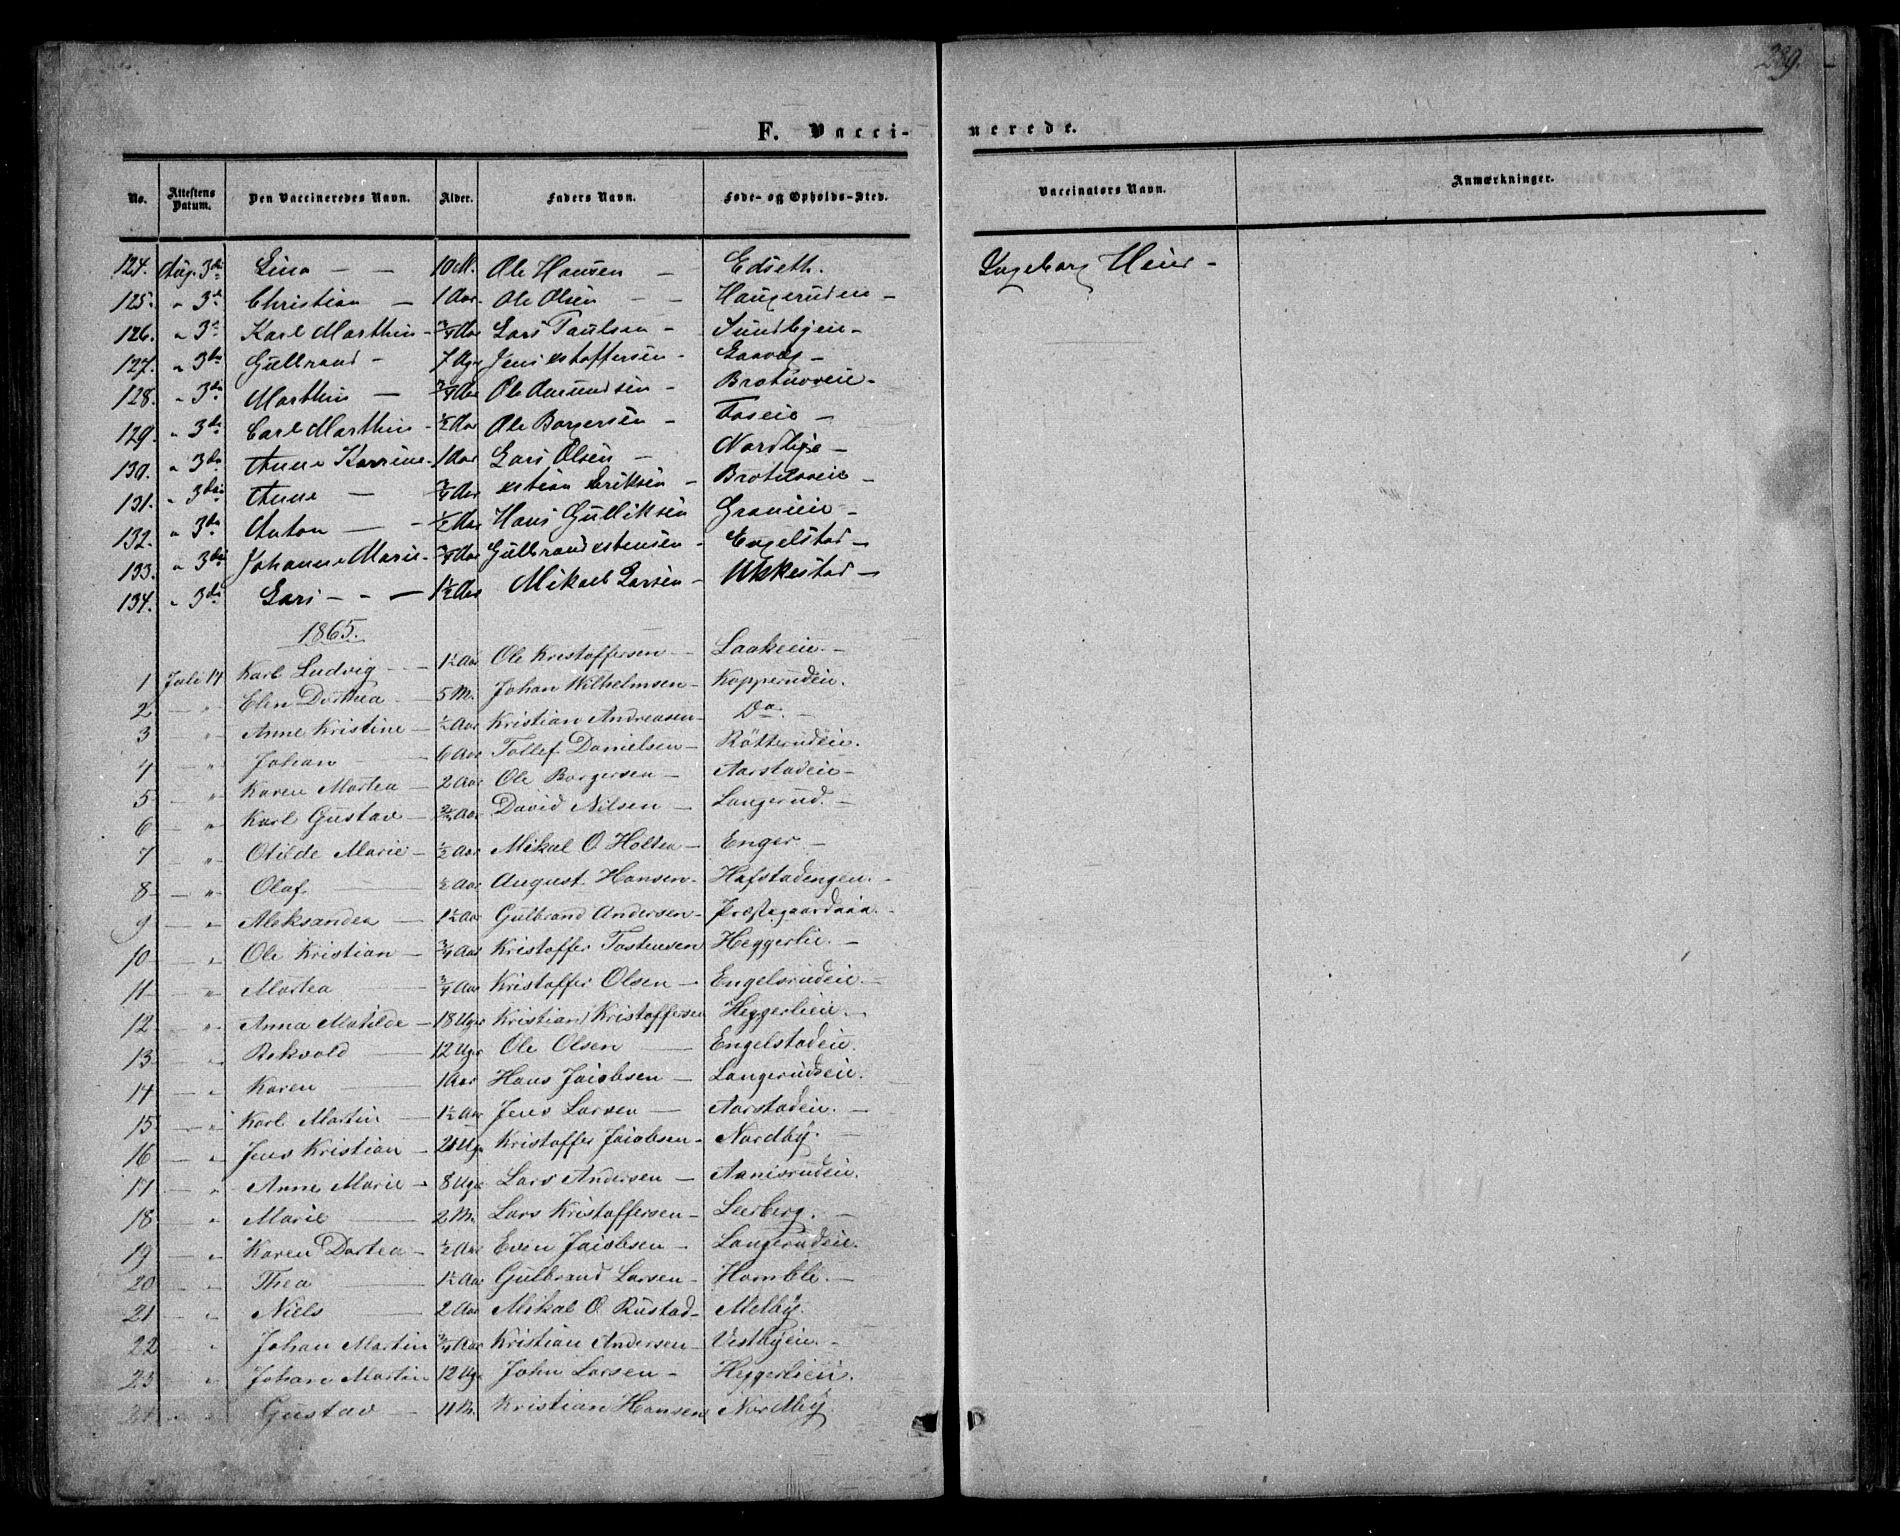 289.
F. Vaccinerede.
No. Attestens Datum. Den Vaccineredes Navn. Alder. Faders Navn. Føde- og Opholds-Sted. Vaccinators Navn. Anmærkninger.
124. Aug. 3die Lina — — 10 M. Ole Hansen — Edseth. Ingeborg Heier —
125. " 3d Christian — 1 Aar. Ole Olsen — — Haugeruden —
126. " 3d Karl Marthin — 3/4 Aar Lars Paulsen — Sundbyeie —
127. " 3de Gulbrand — 7 Ugr Jens Xstoffersen —
128. " 3de Marthin — 3/4 Aar Ole Amundsen —
129. " 3de Carl Marthin — 1/2 Aar Ole Borgersen — Foseie —
130. " 3de Anne Karrine — 1 Aar Lars Olsen — Nordbye —
131. " 3die Anne — 3/4 Aar Xstian Eriksen —
132. " 3de Anton — — 1/2 Aar Hans Gulliksen Graneie —
133. " 3die Johanne Marie — 3/4 Aar Gulbrand Xstensen — Engelstad —
134. " 3de Lars — — — 1 1/2 Aar Mikael Larsen — Ukkestad —
1865.
1 Juli 14 Karl Ludvig — — 1 1/2 Aar Ole Kristoffersen — Laakeeie. —
2 — " Elen Dorthea — 5 M. Johan Wilhelmsen — Kopperudeie.
3 — " Anne Kristine — 1/2 Aar Kristian Andreasen — Do. —
4 — " Johan — 6 Aar Tollef Danielsen — Rötterudeie.
5 — " Karen Martea — 2 Aar Ole Borgersen — Aarstadeie —
6 — " Karl Gustav — 3/4 Aar David Nilsen — Langerud. —
7 — " Otilde Marie — 1/2 Aar Mikal O. Holten — Enger —
8 — " Olaf. — 1/2 Aar August Hansen — Hafstadengen. —
9 — " Aleksandea — 1 1/2 Aar Gulbrand Andersen —
10 — " Ole Kristian — 3/4 Aar Kristoffer Tostensen Heggerlie. —
11 — " Martea — 3/4 Aar Kristoffer Olsen — Engelsrudeie. —
12 — " Anna Matilde — 18 Ugr Kristian Kristoffersen Heggerlieie. —
13 — " Rekvald — 12 Ugr Ole Olsen — Engelstadeie.
14 — " Karen — 1 Aar Hans Jaiobsen — Langerudeie.
15 — " Karl Martin — 1 1/2 Aar Jens Larsen — Aarstadeie. —
16 — " Jens Kristian — Ugr Kristoffer Jaiobsen — Nordby. —
17 — " Anne Marie — 8 Ugr Lars Andersen — Aanisrudeie.
18 — " Marie — 2 M. Lars Kristoffersen — Leerberg. —
19 — " Karen Dortea — 1/2 Aar Even Jaiobsen — Langerudeie.
20 — " Thea — 1 1/2 Aar Gulbrand Larsen — Homble. —
21 — " Niels — 2 Aar Mikal O. Rustad — Melby.
22 — " Johan Martin 3/4 Aar Kristian Andersen — Vestbyeie. —
23 — " Johan Martin 12 Ugr John Larsen — Heggerlieie.
24 — " Gustav — 11 M. Kristian Hansen Nordby